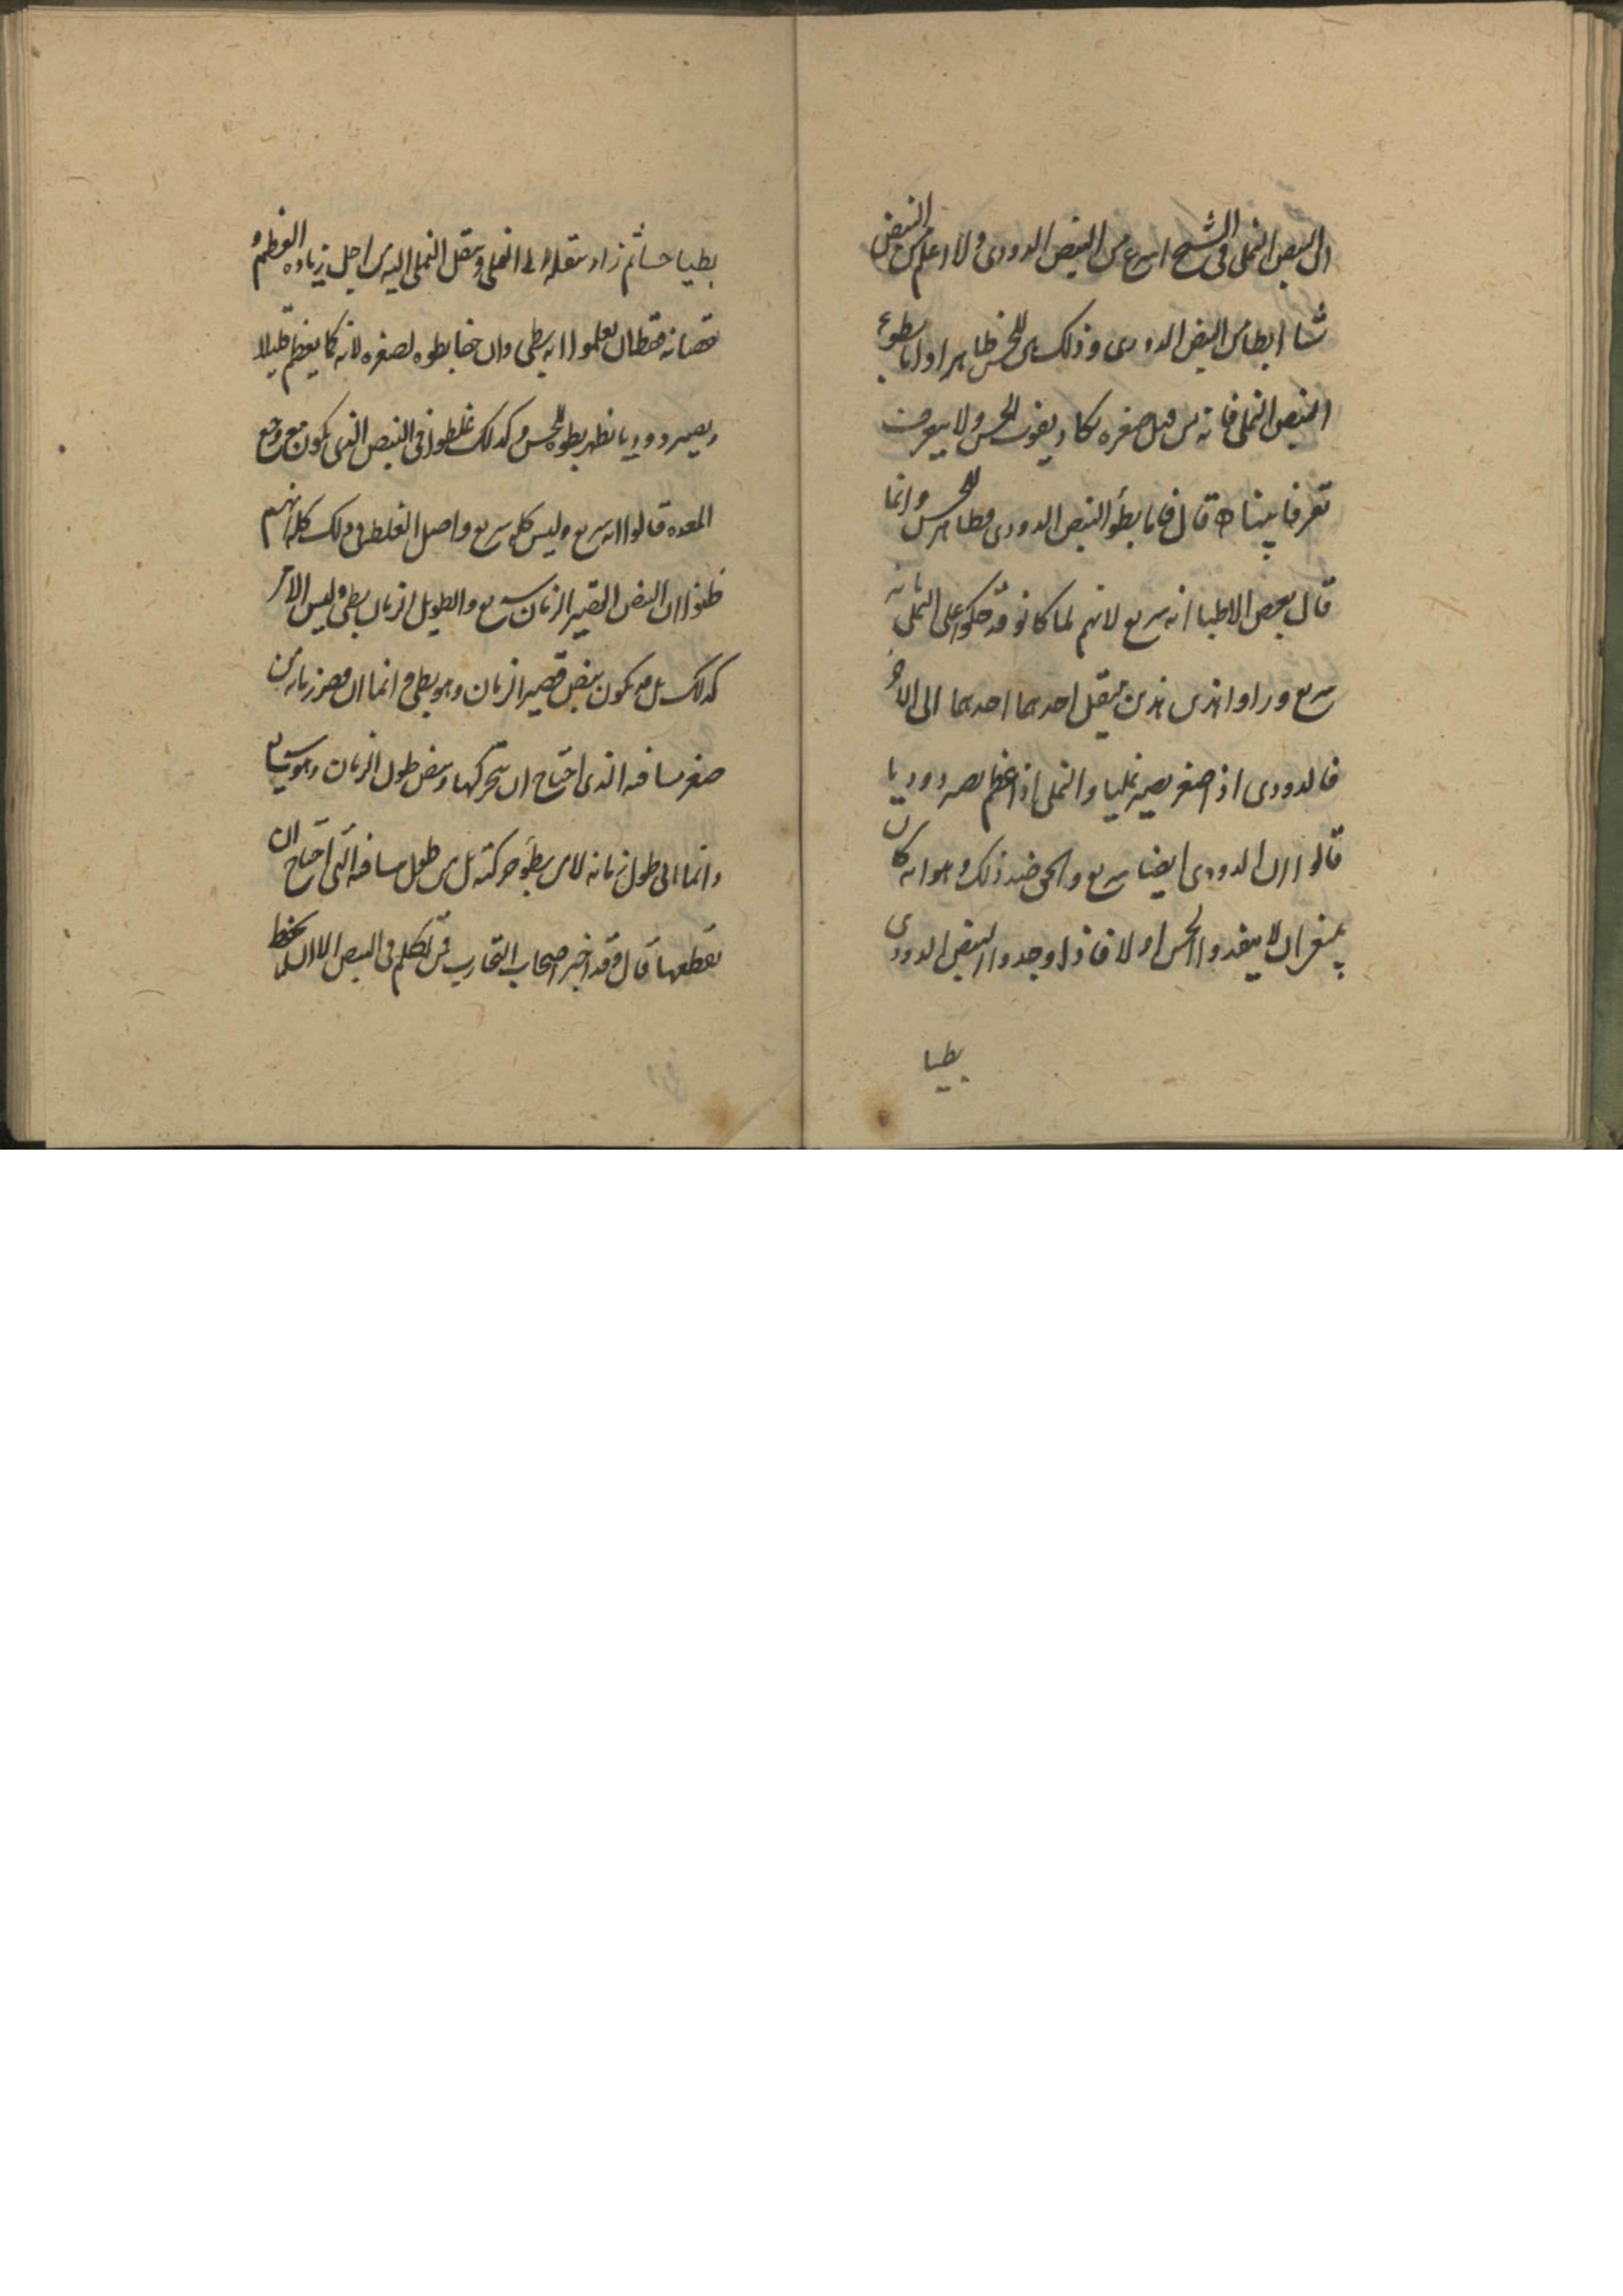 ان النبض النملى فى الشبح اسرع من النبض الدودى ولا اعلم من النبض
شيا ابطا من النبض الدودى وذلك بين للحس ظاهرا واما بطوء
النبض النملى فانه من قبل صغره يكاد يفوت الحس ولا يعرف
تعرفا بينا قال فاما بطؤ النبض الدودى فظاهر للحس وانما
قال بعض الاطبا انه سريع لانهم لما كانو قد حكموا على النملى بانه
سريع وراوا هذين ينتقل احدهما احدهما الى الاخر
فالدودى اذا صغر يصير نمليا والنملى اذا عظم يصير دوديا
قالوا ان الدودى ايضا سريع والحق ضد ذلك وهو انه كان
ينبغى ان لا يفقدوا الحس اولا فاذا وجدوا النبض الدودى
بطيا
بطيا حسا ثم زاد تنقله الى النملى وتنقل النملى اليه من اجل زيادة العظم و
نقصانه فقط ان يعلموا انه بطى وان خفا بطوه لصغره لانه كما يعظم قليلا
ويصير دوديا يظهر بطوه للحس وكذلك غلطوا فى النبض الذى يكون مع وجع
المعده قالوا انه سريع وليس كله سريع واصل الغلط فى ذلك كله انهم
ظنوا ان النبض القصير الزمان سريع والطويل الزمان بطى وليس الامر
كذلك بل قد يكون نبض قصير الزمان وهو بطى وانما اتى قصر زمانه من
صغر مسافه الذى احتاج ان يتحركها ونبض طول الزمان وهو سريع
وانما اتى طول زمانه لا من بطؤ حركته بل من طول مسافه التى احتاج ان
يقطعها قال وقد اخبر اصحاب التجارب فى النبض